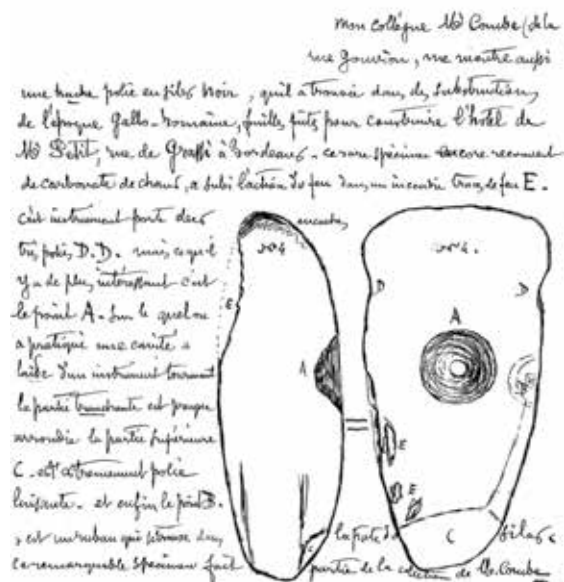 mon collégue Mr Combe (de la
rue Gouvion, me montre aussi
une hache polie en silex noir, qu'il a trouvée dans des substructions
de l'époque Gallo-romaine, fouilles faites pour construire l'hotel de
Mr Petit, rue de Grassi à Bordeaux - ce rare spécimen encore recouvert
de carbonate de chaux, a subi l'action du feu dans un incendie traces de feu E.
cet instrument porte deux encoches
très polies, D.D. mais ce qu'il
y a de plus intéressant c'est
le point A. sur le quel on
a pratiqué une cavité à
l'aide d'un instrument tournant
la partie tranchante est presque
arrondie la partie supérieure
C. est extremement polie
luisante. et enfin le point B.
est un ruban qui se trouve dans la pate du silex
ce remarquable spécimen fait partie de la collection de Mr Combe
No 4
E
A
No 4.
D
D
A
E
E
C